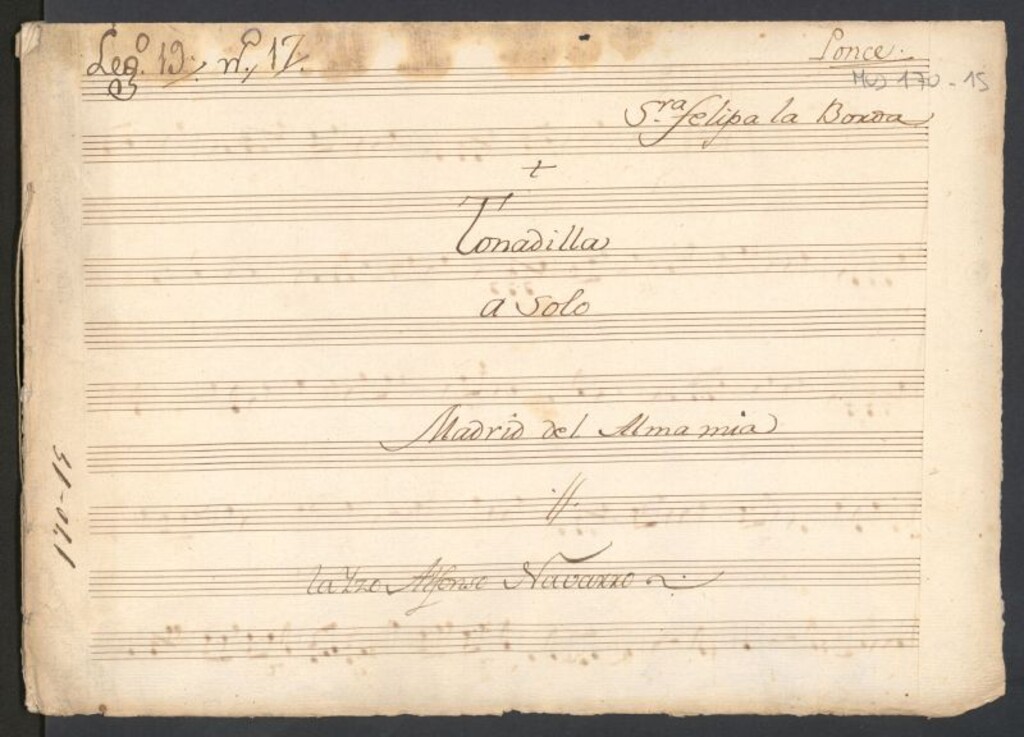 Leg.º 19. n.º 17.
Ponce.
Mus 170-15
S.ra Felipa la Borda
+
Tonadilla
a Solo
Madrid del Alma mia
//
la Yzo Alfonso Navarro
170-15